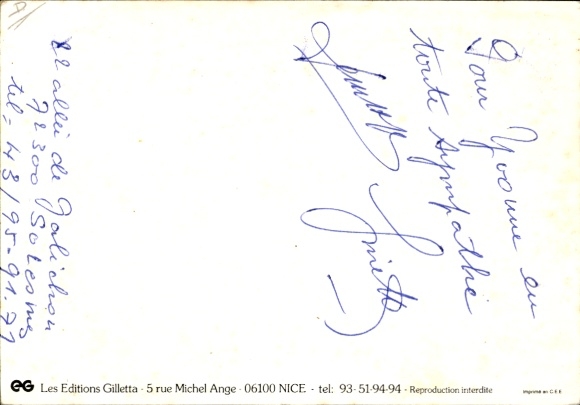 Pour Yvonne en
toute sympathie
Ginette
22 allée de Galichou
72300 Solesmes
tel = 43/95-91.71
Les Editions Gilletta - 5 rue Michel Ange - 06100 NICE - tel: 93-51-94-94 - Reproduction interdite
Imprimé en C.E.E